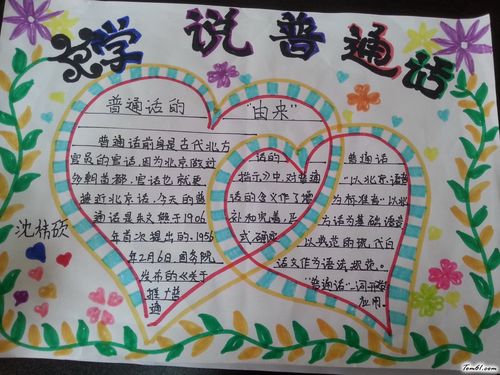 学说普通话
普通话的"由来"
普通话前身是古代北方
官员的官话,因为北京做过
多朝首都,官话也就更
接近北京话。今天的普
通话是朱文熊于1906
年首次提出的。1956
年2月6日,国务院
发布的《关于
推广普
通
话的
普通话
指示》中,对普通
话的含义作了增
补和完善,正
式确定
"以北京语音
为标准音,以北
方话为基础语言
以典范的现代白
话文作为语法规范。
"普通话"一词开始
应用。
沈
硕
Tom61.com